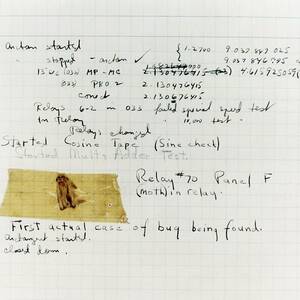 started { 1.2700 9.037 847 025
" stopped - arctan ✓ 9.037 846 995
MP - MC 2.130476415 4.615925059(
PRO 2 2.130476415
2.130676415
Relays 6-2 in 033 failed special speed test
In Relay " 10,000 test "
Relays changed
Started Cosine Tape (Sine check)
Started Mult + Adder Test.
Relay #70 Panel F
(moth) in relay.
First actual case of bug being found.
started.
closed down.